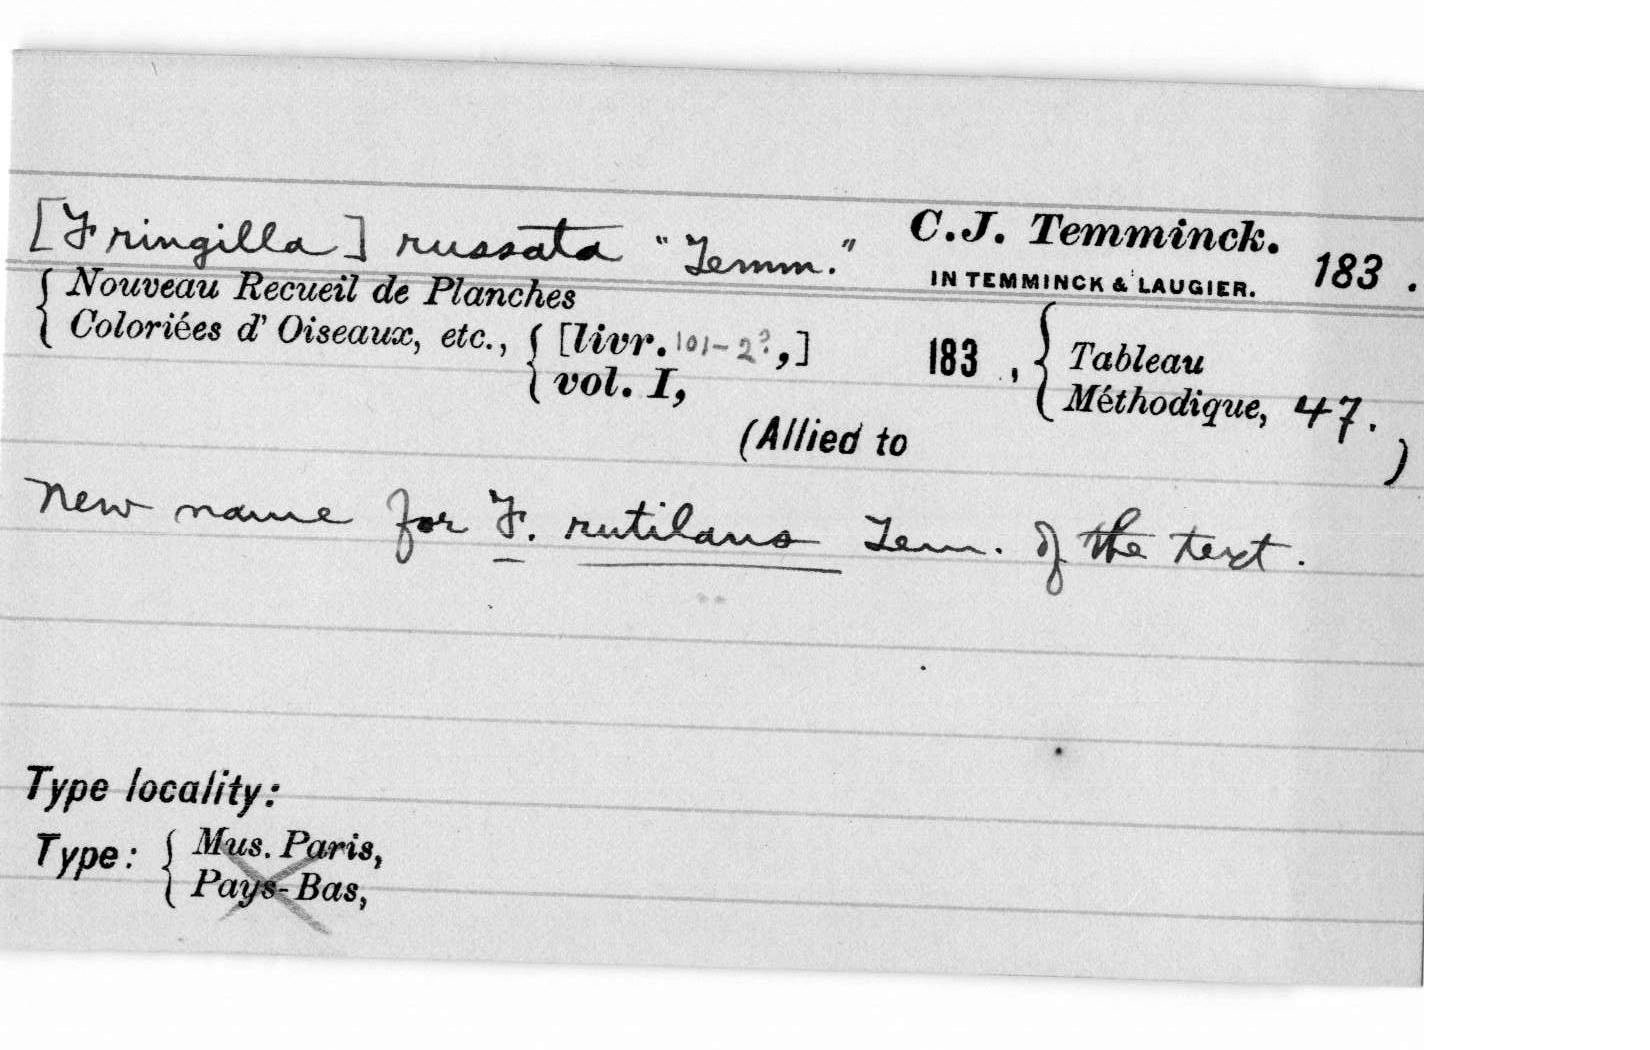 [Fringilla] russata "Temm." C.J. Temminck.
IN TEMMINCK & LAUGIER. 183 .
Nouveau Recueil de Planches
Coloriées d' Oiseaux, etc., [livr. 101-2?,] 183 , Tableau
vol. I, Méthodique, 47.
(Allied to )
New name for F. rutilans Tem. of the text.
Type locality:
Type: Mus. Paris,
Pays-Bas,